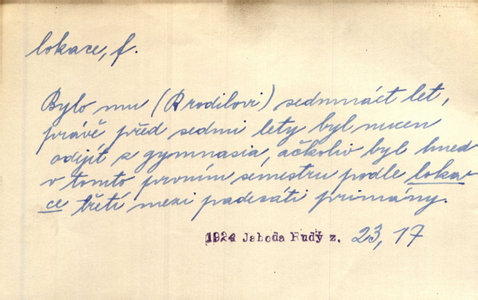 lokace, f.
Bylo mu (Brodilovi) sedmnáct let,
právě před sedmi lety byl nucen
odejít z gymnasia, ačkoliv byl hned
v tomto prvním semestru podle loka-
ce třetí mezi padesáti primány.
1924 Jahoda Rudý z. 23, 17